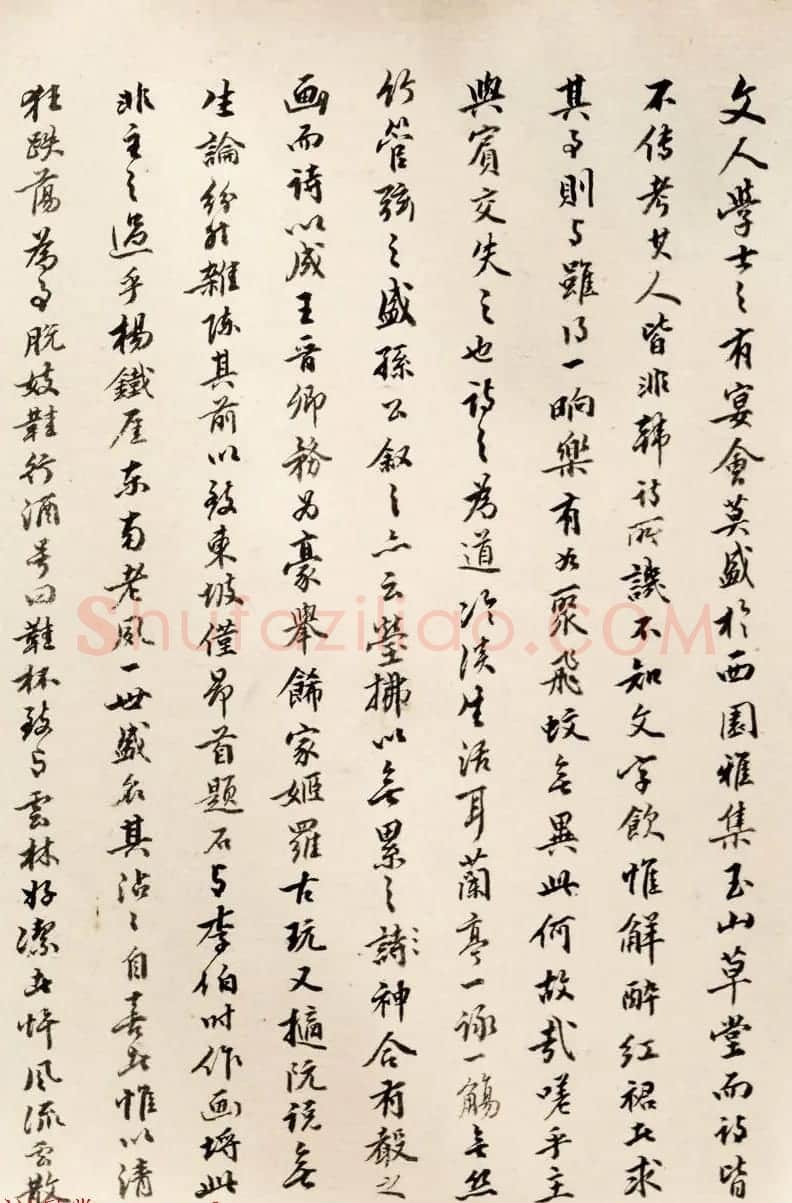 文人學士之有宴會莫盛於西園雅集玉山草堂而詩皆
不传考其人皆非韩詩所譏不知文字飲惟解醉紅裙者求
其事則与雖得一晌樂有如聚飛蚊無異此何故哉嗟乎主
與賓交失之也詩之為道冷淡生活耳蘭亭一詠一觴無絲
竹管弦之盛孫公叙之亦云瑩拂以無累之詩神合有聲之
画而詩以成王晋卿務为豪舉飾家姬羅古玩又
生論紛然雜陈其前以致東坡僅昂首題石与李伯时作画
非主之過乎楊鐵厓东南老風一世盛名其沾沾自喜者惟以清
狂跌蕩為事脫妓鞋行酒号曰鞋杯致与雲林好潔者忤風流雲散
Shufaziliao.COM